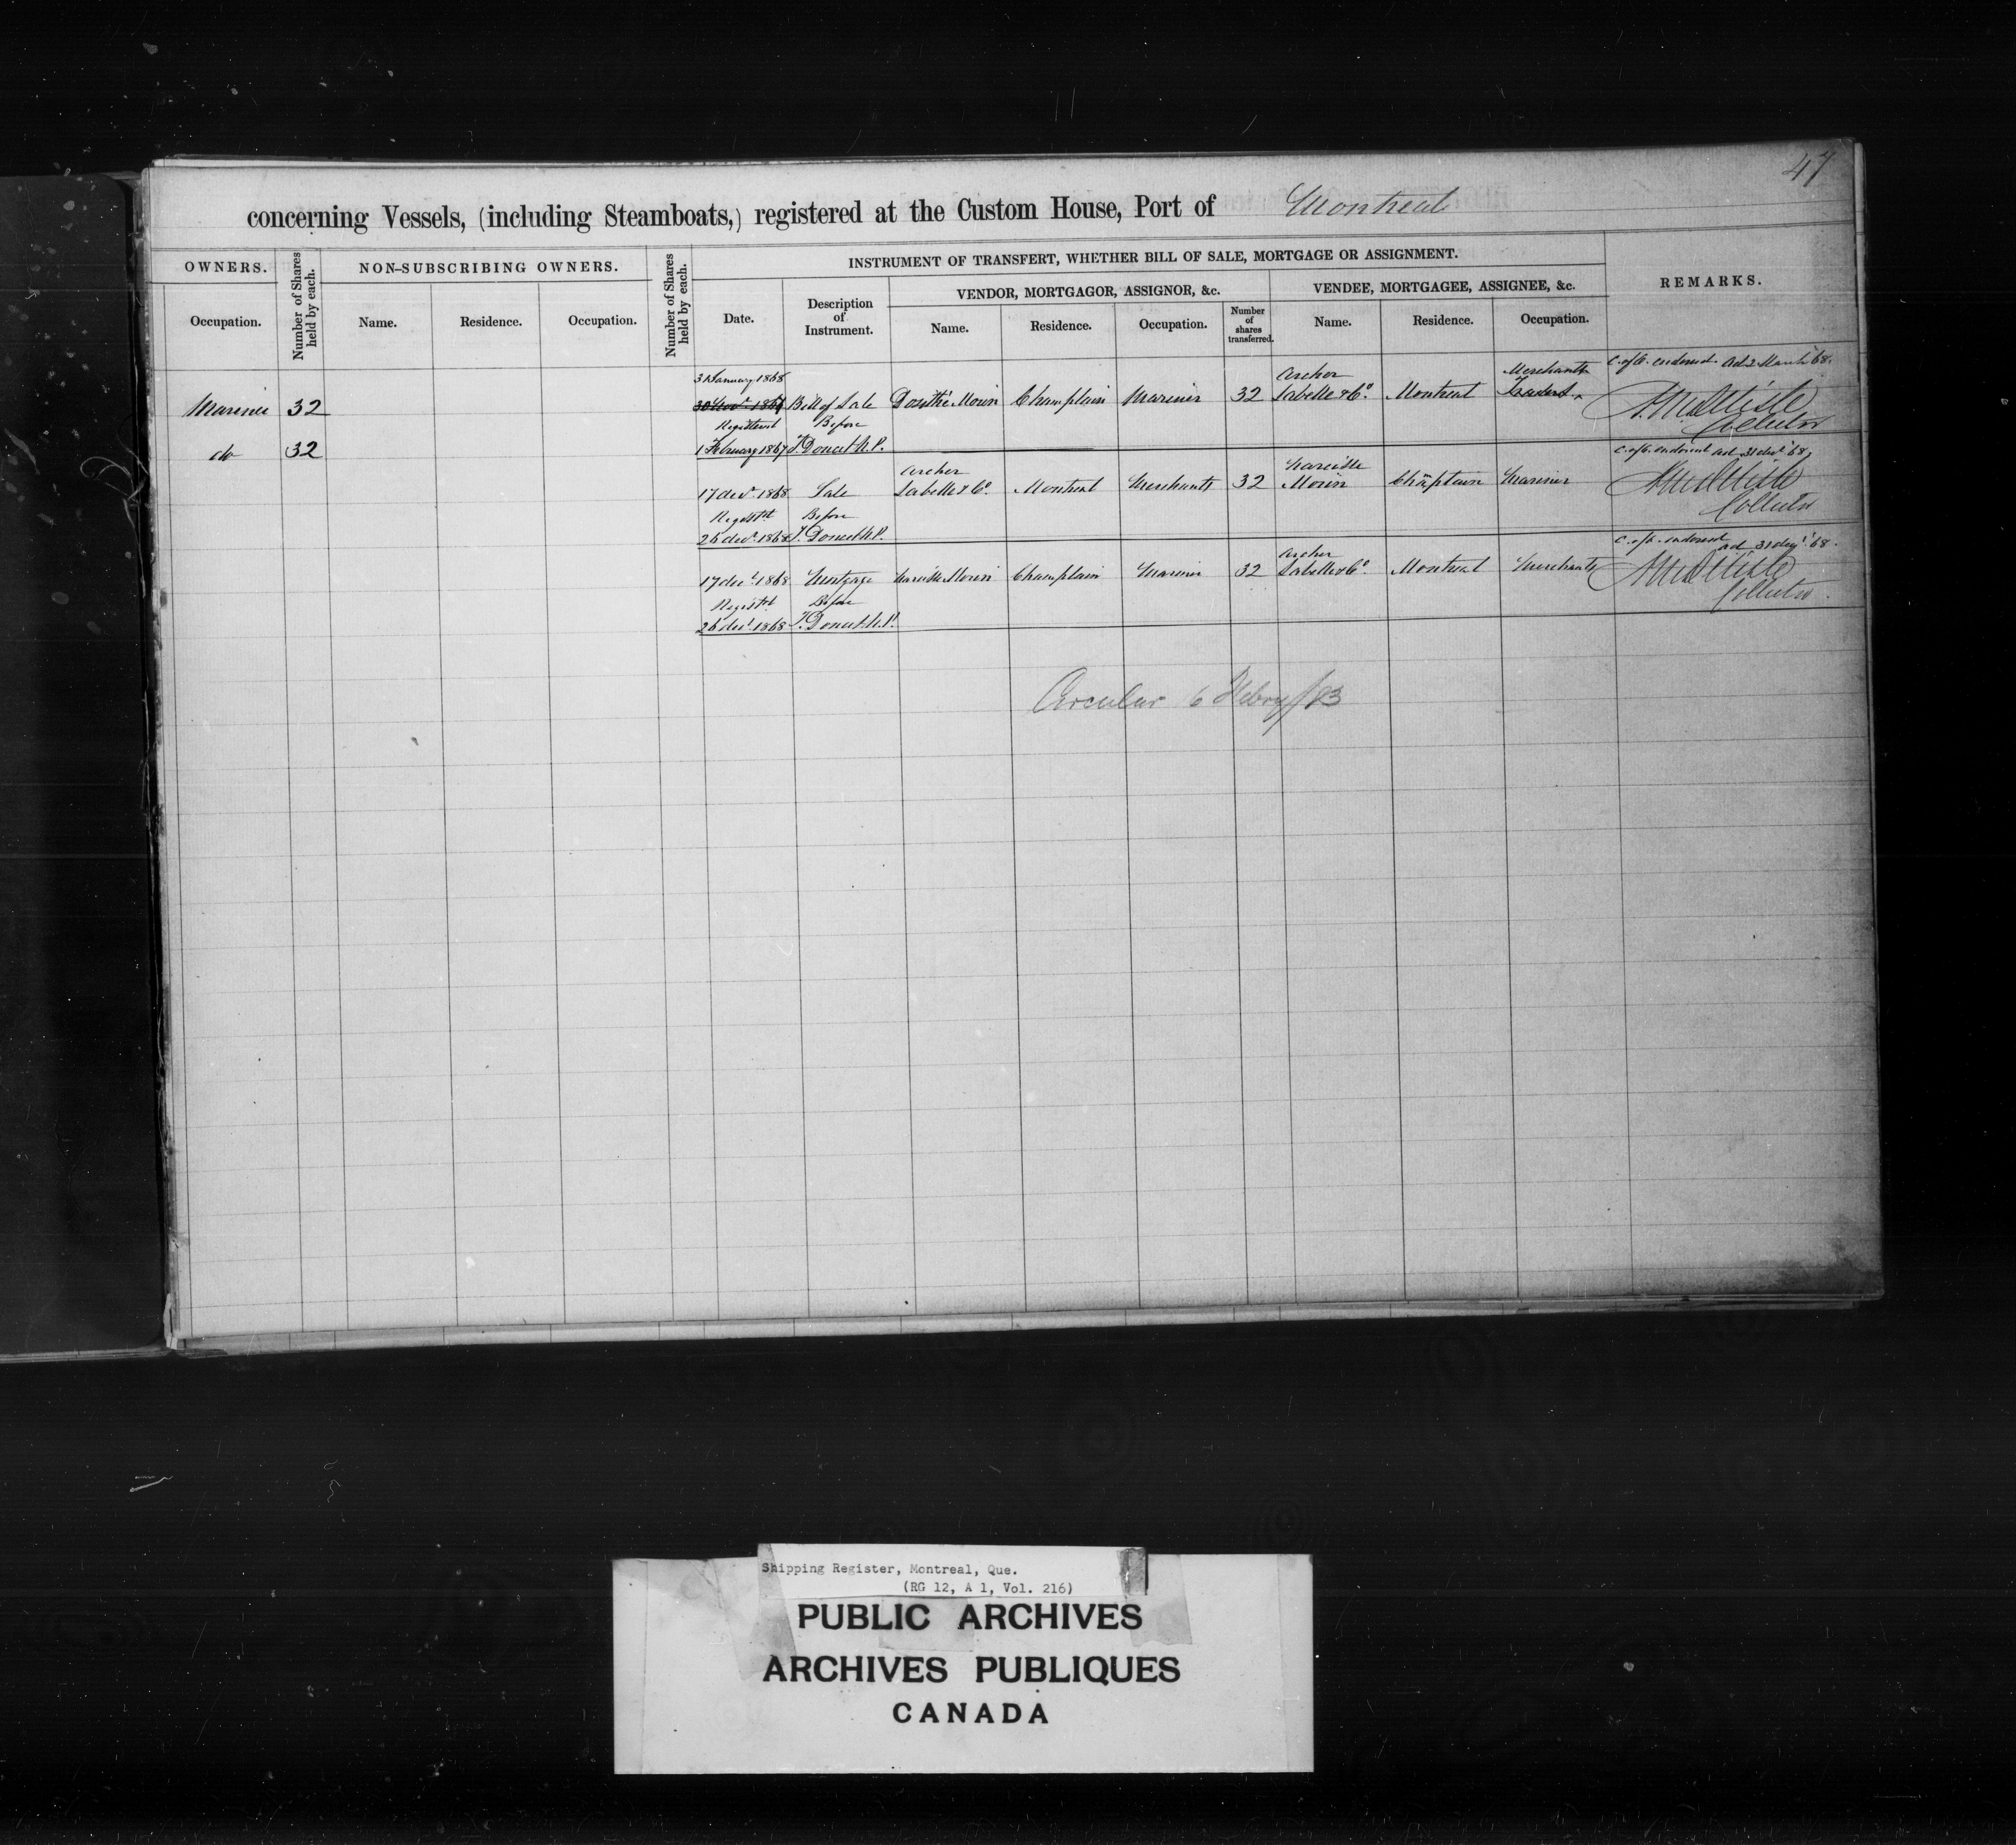 47
concerning Vessels, (including Steamboats,) registered at the Custom House, Port of Montreal
OWNERS.
Number of Shares held by each.
NON-SUBSCRIBING OWNERS.
Number of Shares held by each.
INSTRUMENT OF TRANSFERT, WHETHER BILL OF SALE, MORTGAGE OR ASSIGNMENT.
REMARKS.
VENDOR, MORTGAGOR, ASSIGNOR, &c.
VENDEE, MORTGAGEE, ASSIGNEE, &c.
Occupation.
Name.
Residence.
Occupation.
Date.
Description of Instrument.
Name.
Residence.
Occupation.
Number of shares transferred.
Name.
Residence.
Occupation.
31 January 1868 Archer Merchants C. of O. endorsed
Mariner 32 30 Nov. 1867 Bill of Sale Dosithé Morin Champlain Mariner 32 Labelle & Co. Montreal Traders
Registered Before Collector
do 32 1 February 1867 T. Doucet N.P.
Archer Narcisse C. of O. endorsed
17 decr. 1868 Sale Labelle & Co. Montreal Merchants 32 Morin Champlain Mariner
Registd Before Collector
26 decr. 1868 T. Doucet N.P.
Archer C. of O. endorsed
17 decr. 1868 Mortgage Narcisse Morin Champlain Mariner 32 Labelle & Co. Montreal Merchants
Registd Before Collector
26 decr. 1868 T. Doucet N.P.
Circular 6 Febry/83
Shipping Register, Montreal, Que.
(RG 12, A 1, Vol. 216)
PUBLIC ARCHIVES
ARCHIVES PUBLIQUES
CANADA